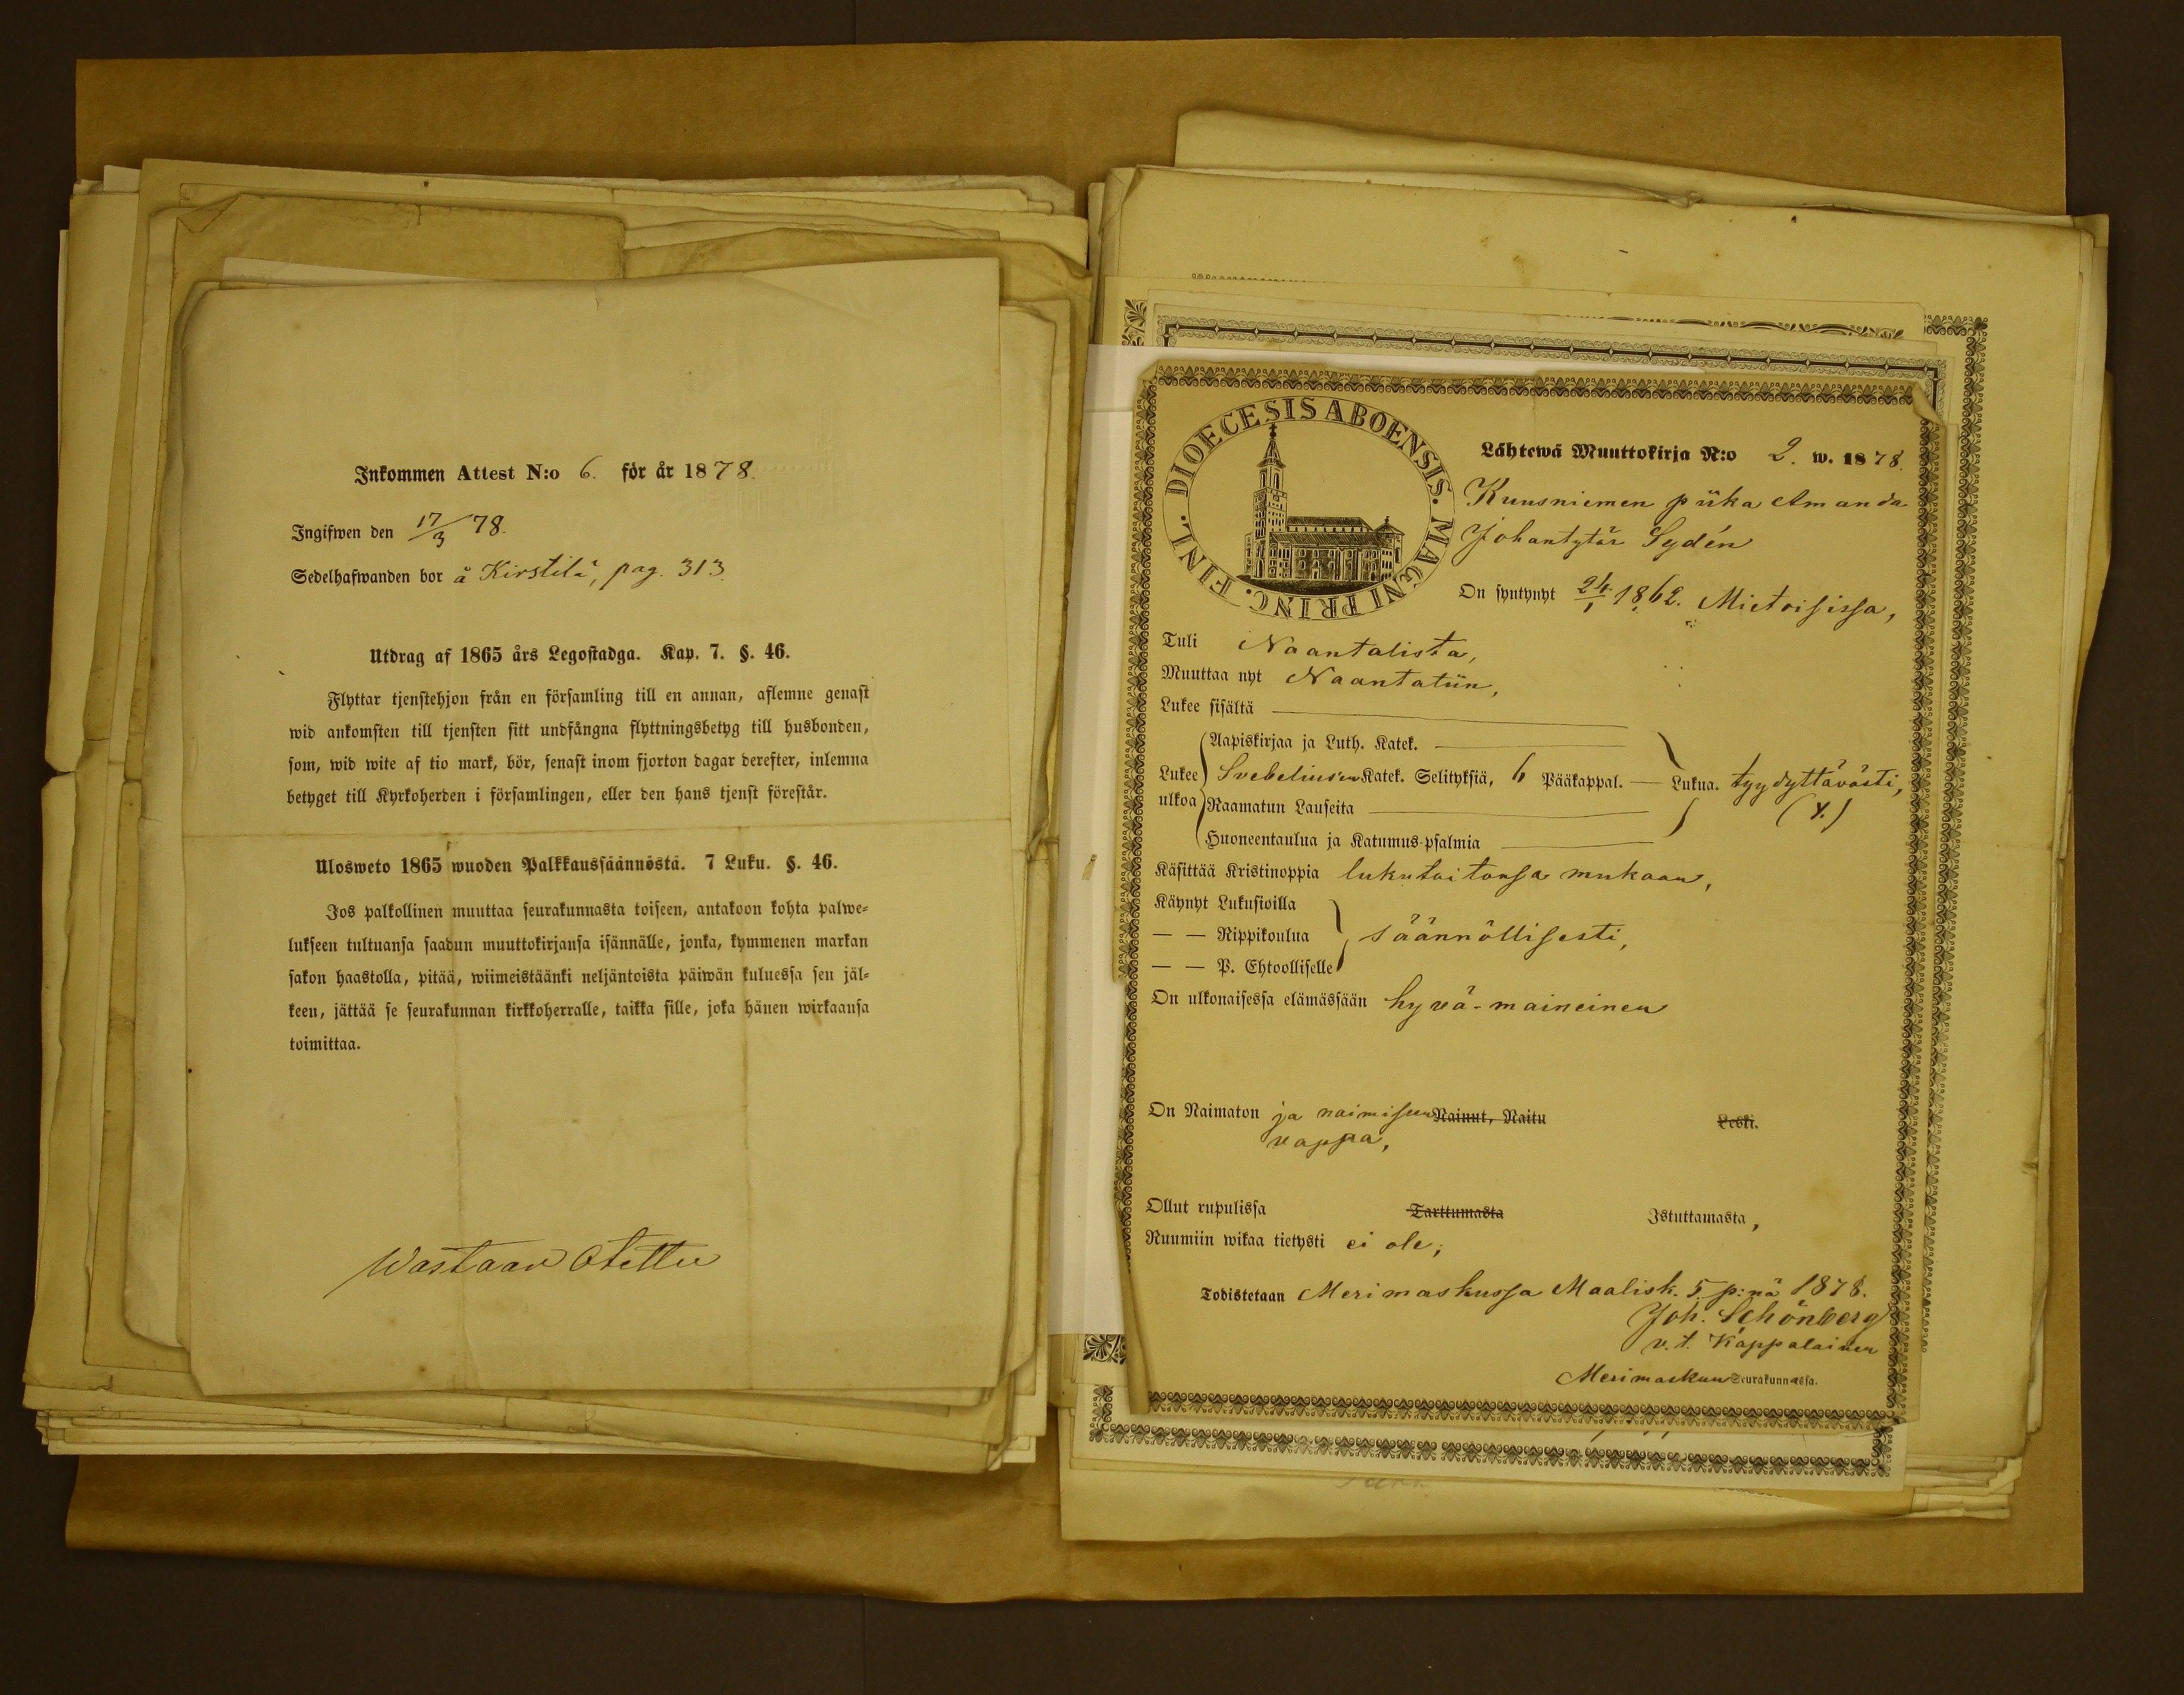 Inkommen Attest N:o 6. för år 1878.
Ingifwen den 17/3 78.
Sedelhafwanden bor å Kirstilä, pag. 313.
Utdrag af 1865 års Legostadga. Kap. 7. §. 46.
Flyttar tjenstehjon från en församling till en annan, aflemne genast
wid ankomsten till tjensten sitt undfångna flyttningsbetyg till husbonden,
som, wid wite af tio mark, bör, senast inom fjorton dagar derefter, inlemna
betyget till Kyrkoherden i församlingen, eller den hans tjenst förestår.
Ulosweto 1865 wuoden Palkkaussäännöstä. 7 Luku. §. 46.
Jos palkollinen muuttaa seurakunnasta toiseen, antakoon kohta palwe-
lukseen tultuansa saadun muuttokirjansa isännälle, jonka, kymmenen markan
sakon haastolla, pitää, wiimeistäänki neljäntoista päiwän kuluessa sen jäl-
keen, jättää se seurakunnan kirkkoherralle, taikka sille, joka hänen wirkaansa
toimittaa.
Wastaan Otettu
DIOECESIS ABOENSIS. MAGNI PRINC. FINL.
Lähtewä Muuttokirja N:o 2. w. 1878.
Kuusniemen piika Amanda
Johantytär Sydén
On syntynyt 24/1 1862. Mietoisissa,
Tuli Naantalista,
Muuttaa nyt Naantaliin,
Lukee sisältä
Aapiskirjaa ja Luth. Katek.
Lukee ulkoa Svebeliusen Katek. Selityksiä, 6 Pääkappal. — Lukua. tyydyttävästi,
Raamatun Lauseita (Y.)
Huoneentaulua ja Katumus-psalmia
Käsittää Kristinoppia lukutaitonsa mukaan,
Käynyt Lukusioilla
— — Rippikoulua säännöllisesti,
— — P. Ehtoolliselle
On ulkonaisessa elämässään hyvä-maineinen
On Naimaton ja naimiseen Nainut, Naitu Leski.
vappaa,
Ollut rupulissa Tarttumasta Istuttamasta,
Ruumiin wikaa tietysti ei ole;
Todistetaan Merimaskussa Maalisk. 5 p:nä 1878.
Joh. Schönberg
v. t. Kappalainen
Merimaskun Seurakunnassa.